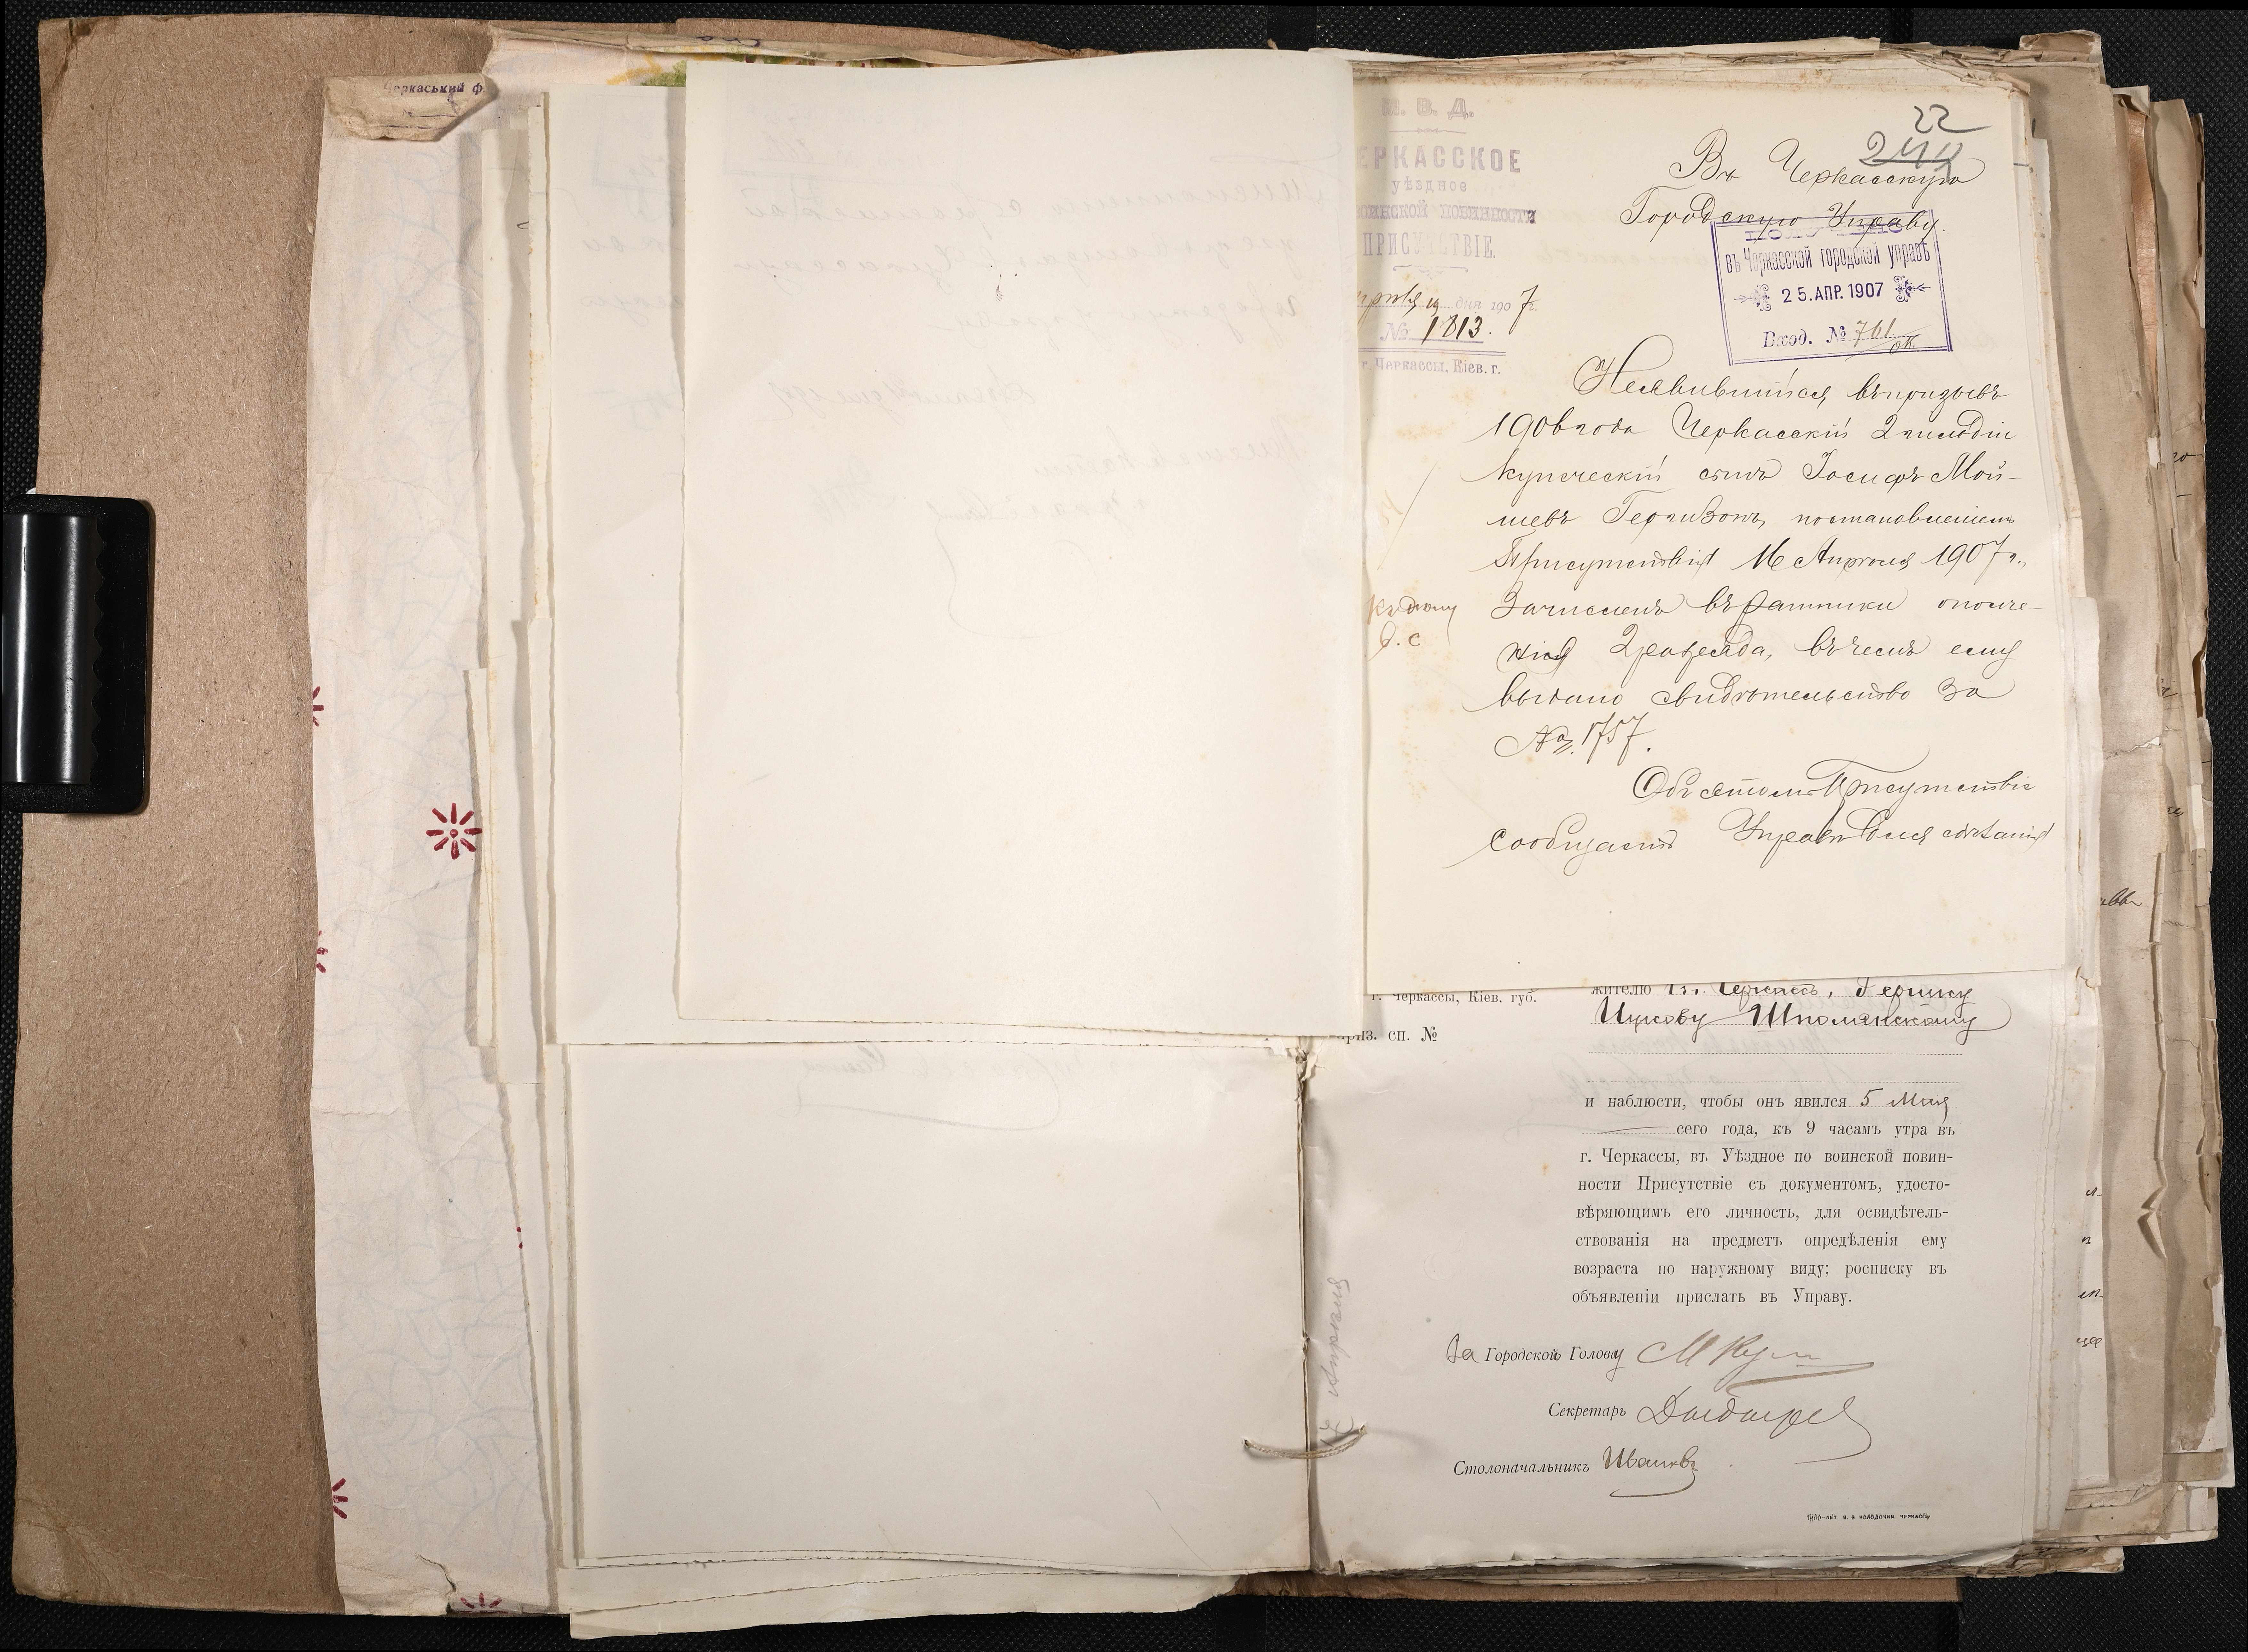 Черкаський ф
М. В. Д.
ЕРКАССКОЕ
уѣздное
ОИНСКОЙ ПОВИННОСТИ
ПРИСУТСТВІЕ.
дня 1907 г.
№ 1813.
г. Черкассы, Кіев. г.
22
244
Въ Черкасскую
Городскую Управу.
въ Черкасской городской управѣ
25. АПР. 1907
Вход. № 761
Неявившійся въ призывъ
1906 года Черкасскій 2 гильдіи
купеческій сынъ Іосифъ Мой-
шевъ постановленіемъ
Присутствія 16 Апрѣля 1907 г.,
зачисленъ въ ратники ополче-
нія 2 разряда, въ чемъ ему
выдано свидѣтельство за
№ 1757.
Объ этомъ Присутствіе
сообщаетъ Управѣ для
жителю г. Черкассъ,
Шполянскому
риз. сп. №
г. Черкассы, Кіев. губ.
и наблюсти, чтобы онъ явился 5 Мая
сего года, къ 9 часамъ утра въ
г. Черкассы, въ Уѣздное по воинской повин-
ности Присутствіе съ документомъ, удосто-
вѣряющимъ его личность, для освидѣтель-
ствованія на предметъ опредѣленія ему
возраста по наружному виду; росписку въ
объявленіи прислать въ Управу.
За Городской Голову
Секретарь
Столоначальникъ Ивановъ